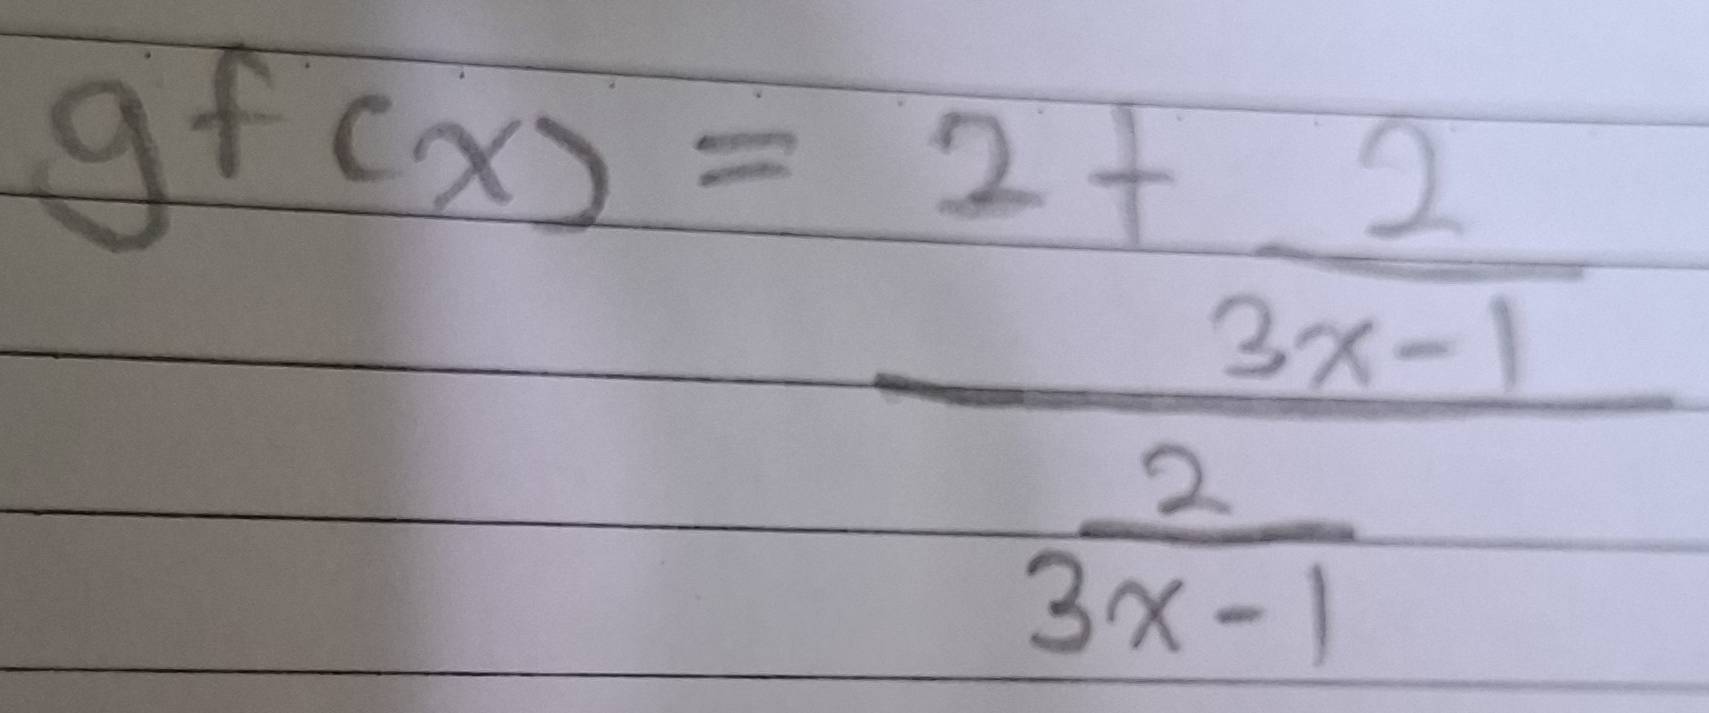 gf(x) = 2 + 2
3x-1
2
3x-1